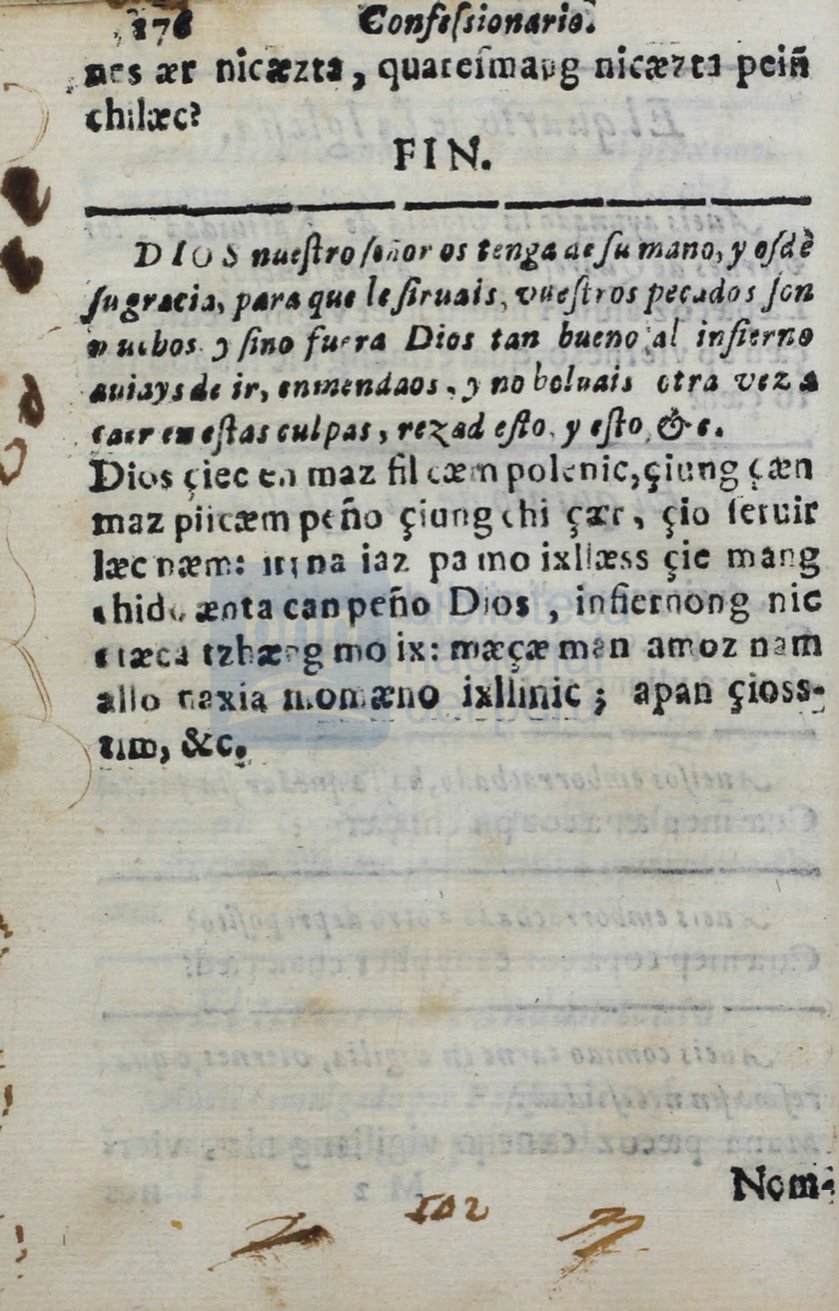 176 Confeſsionario.
nes ær nicæzta, quareſmaug nicæzta peiñ
chilæc?
FIN.
DIOS nueſtro ſeñor os tenga de ſu mano, y oſdè
ſu gracia, para que le ſiruais, vueſtros pecados ſon
muchos y ſino fuera Dios tan bueno al infierno
auiays de ir, enmendaos, y no boluais otra vez a
caer en eſtas culpas, rezad eſto, y eſto, &c.
Dios çiec en maz fil cæm polenic, çiung çæn
maz piicæm peño çiung chi çær, çio ſeruir
læc næm: iaz pa mo ixllæss çie mang
chido ænta can peño Dios, infiernong nic
tzhæng mo ix: mæçæ man amoz nam
allo naxia momæno ixllinic; apan çioss-
tim, &c.
Nom-
102